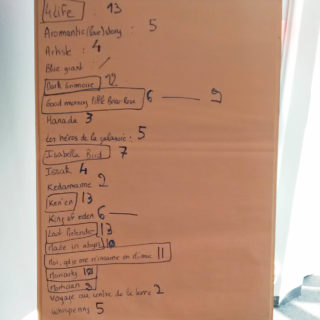 4 Life : 13
Aromantic (love) story : 5
Artiste : 4
Blue giant :
Dark Grimoire 12
Good morning little Briar-Rose 6 — 9
Hanada 3
Les héros de la galaxie : 5
Isabella Bird 7
Issak 4
Kedamame 2
Ken'en 13
King of eden 6 —
Last Pretender 13
Made in abyss 10
Moi, qui me réincarne en 11
Moriarty
Mortician
Voyage au centre de la terre 2
Whispering 5